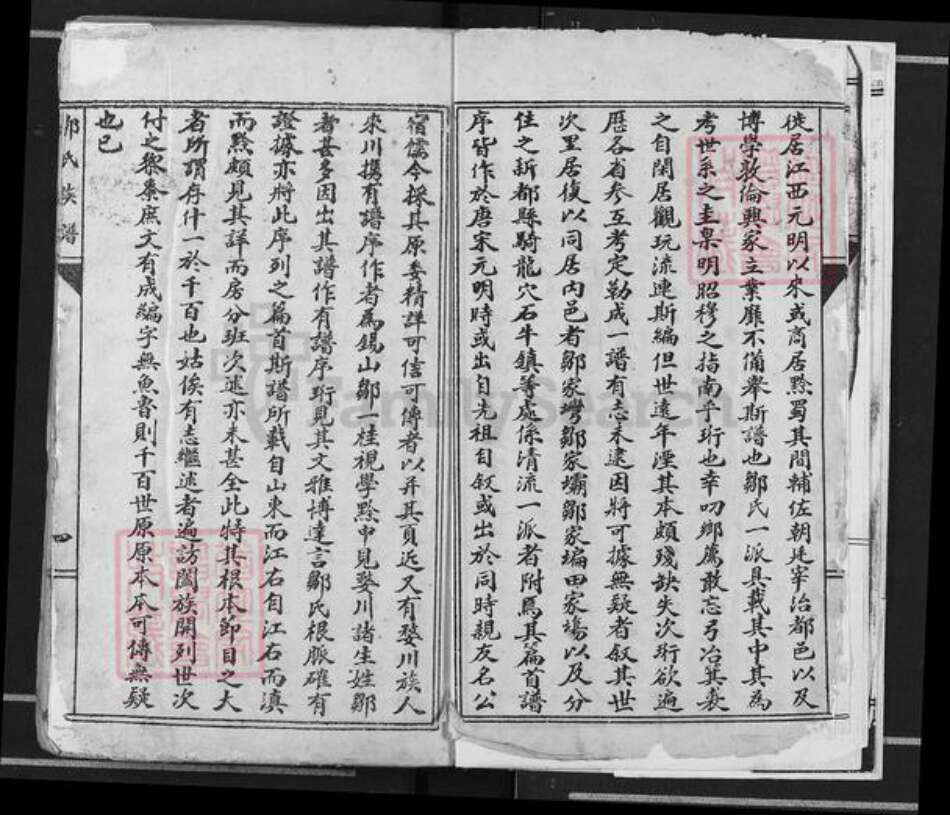 徙居江西元明以來或商居黔蜀其間輔佐朝廷宰治都邑以及
博學敦倫興家立業靡不備舉斯譜也鄒氏一派具載其中其為
考世系之圭臬明昭穆之指南乎珩也幸叨鄉薦敢忘弓冶箕裘
之自閑居觀玩流連斯編但世遠年湮其本頗殘缺失次珩欲遍
歷各省參互考定勒成一譜有志未逮因將可據無疑者叙其世
次里居復以同居內邑者鄒家灣鄒家壩鄒家塥田家塲以及分
住之新都縣騎龍穴石牛鎮等處係清流一派者附焉其篇首譜
序皆作於唐宋元明時或出自先祖自叙或出於同時親友名公
宿儒今採其原委精詳可信可傳者以弁其頁近又有婺川族人
來川携有譜序作者為錫山鄒一桂視學黔中見婺川諸生姓鄒
者甚多因出其譜作有譜序珩見其文雅博達言鄒氏根脈確有
證據亦將此序列之篇首斯譜所載自山東而江右自江右而滇
而黔頗見其詳而房分班次述亦未甚全此特其根本節目之大
者所謂存什一於千百也姑俟有志繼述者遍訪闔族開列世次
付之黎棗庶文有成編字無魚魯則千百世原原本本可傳無疑
也已
鄒氏族譜
四
FamilySearch